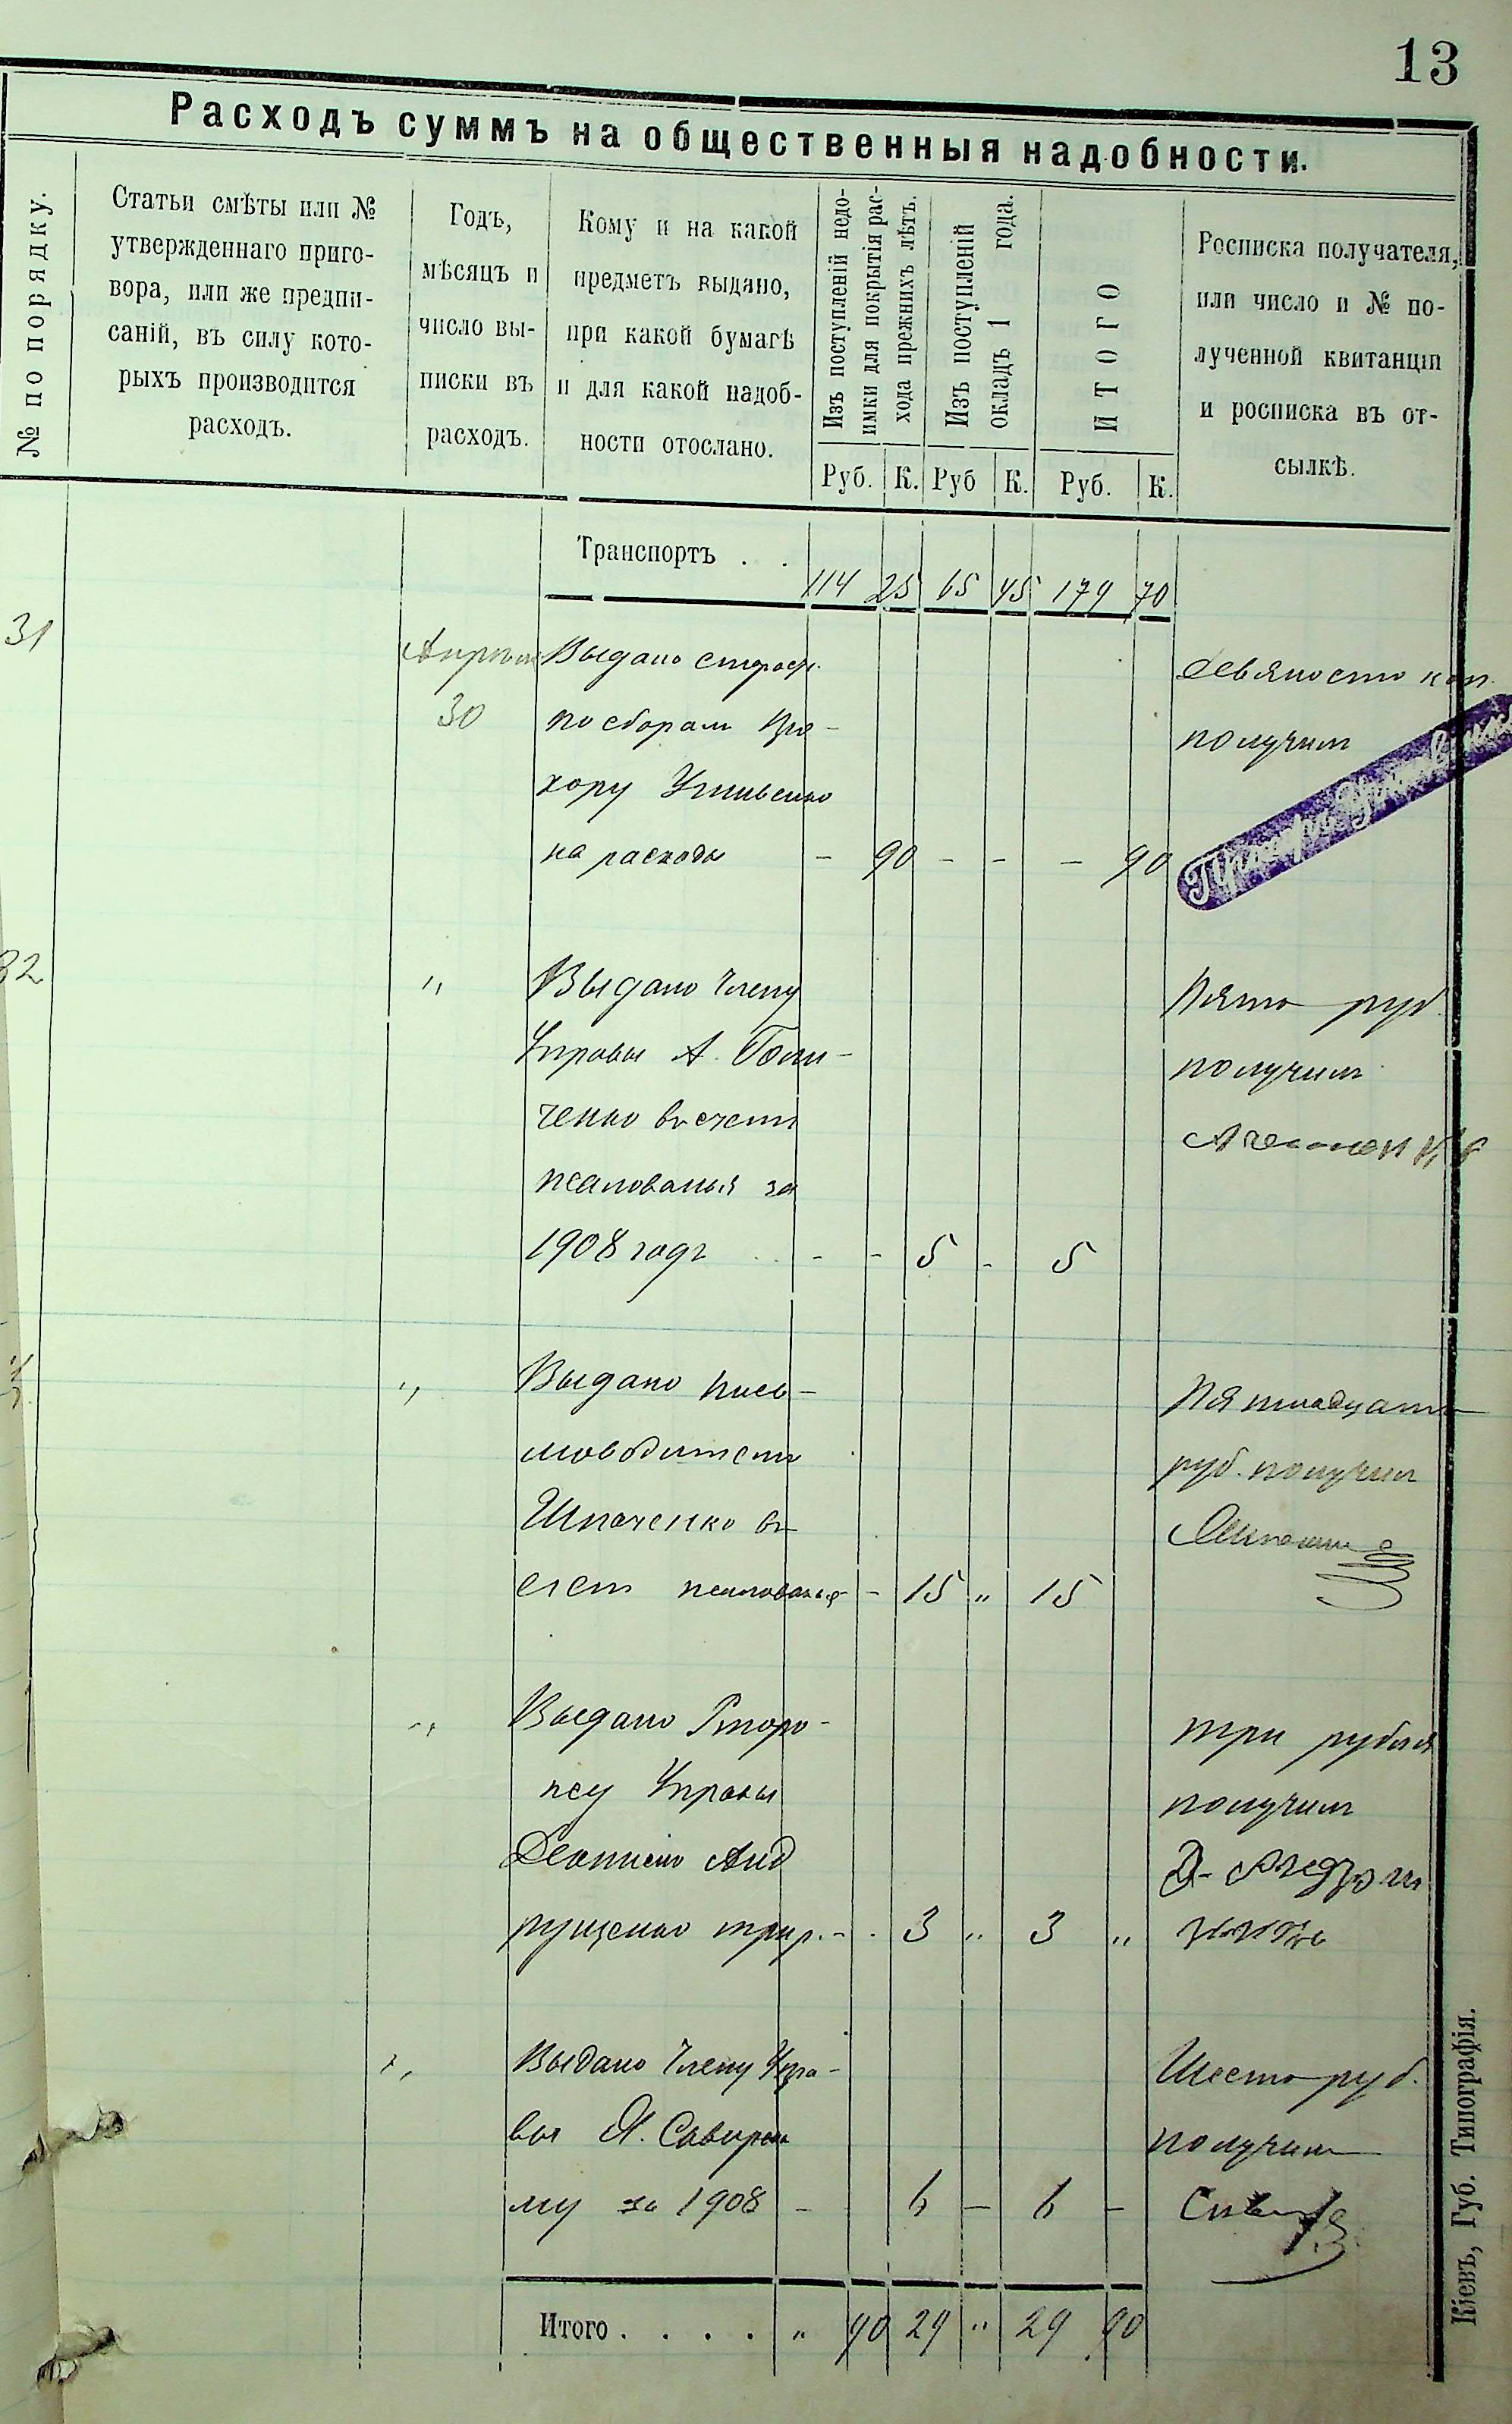 13
Расходъ суммъ на общественныя надобности.
№ по порядку.
Статьи смѣты или №
утвержденнаго приго-
вора, или же предпи-
саній, въ силу кото-
рыхъ производится
расходъ.
Годъ,
мѣсяцъ и
число вы-
писки въ
расходъ.
Кому и на какой
предметъ выдано,
при какой бумагѣ
и для какой надоб-
ности отослано.
Изъ поступленій недо-
имки для покрытія рас-
хода прежнихъ лѣтъ.
Изъ поступленій
окладъ 1 года.
ИТОГО
Росписка получателя,
или число и № по-
лученной квитанціи
и росписка въ от-
сылкѣ.
Руб. К. Руб К. Руб. К.
Транспортъ . . 114 25 65 45 179 70
31
Выдано
девяносто коп.
30 по сборам
получил
хору
на расходы - 90 - - - 90
32 " Выдано Члену
Пять руб.
Управы А.
получил
ченко в счет
жалованья за
1908 годъ - - 5 - 5
" Выдано пись-
Пятнадцать
моводителю
руб. получил
Шпаченко в
счет жалованья - 15 " 15
" Выдано
три рубля
Управы
получил
Анд
рущенко три р. - . 3 " 3 "
" Выдано Члену Упра-
Шесть руб.
вы
получил
му за 1908 - 6 - 6 -
Итого . . . . " 90 29 " 29 90
Кіевъ, Губ. Типографія.